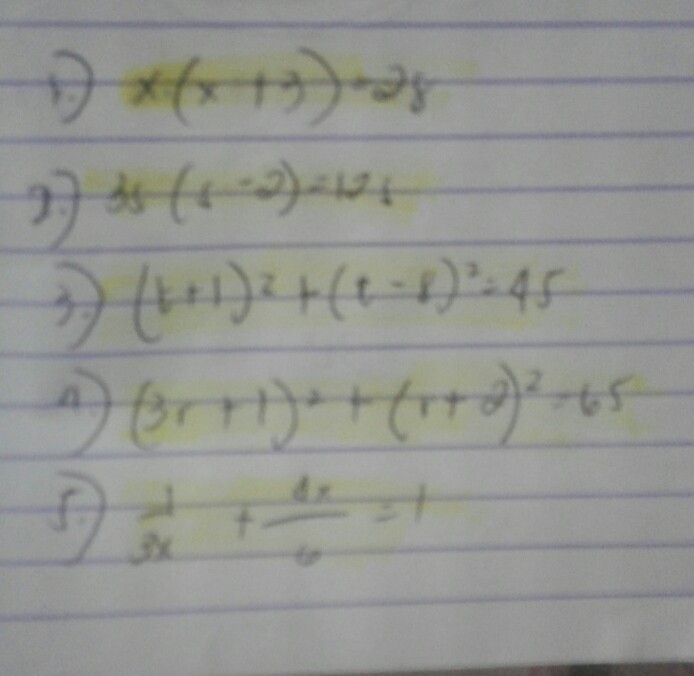 1.) x(x+3)=28
2.) 3s(s-2)=12s
3.) (t+1)²+(t-8)²=45
4.) (3r+1)²+(r+2)²=65
5.) 1/3x + 4x/6 = 1